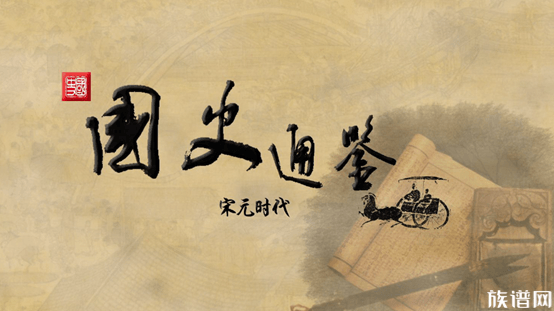 國史通鉴
宋元时代
族谱网